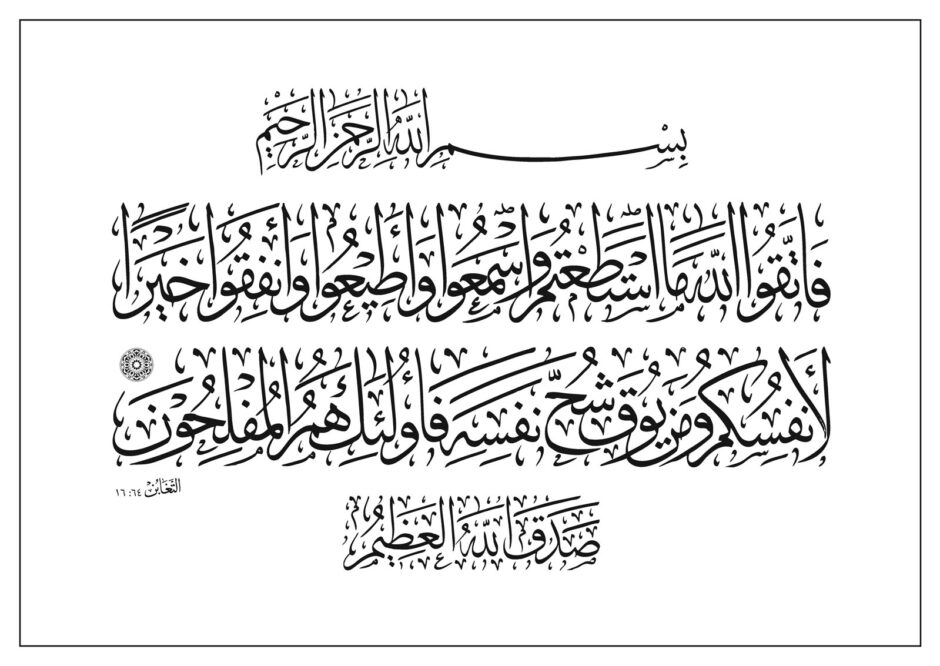 بِسْمِ اللَّهِ الرَّحْمَنِ الرَّحِيمِ
فَاتَّقُوا اللَّهَ مَا اسْتَطَعْتُمْ وَاسْمَعُوا وَأَطِيعُوا وَأَنفِقُوا خَيْرًا
لِأَنفُسِكُمْ وَمَن يُوقَ شُحَّ نَفْسِهِ فَأُولَئِكَ هُمُ الْمُفْلِحُونَ
التَّغَابُن ٦٤: ١٦
صَدَقَ اللَّهُ الْعَظِيمُ